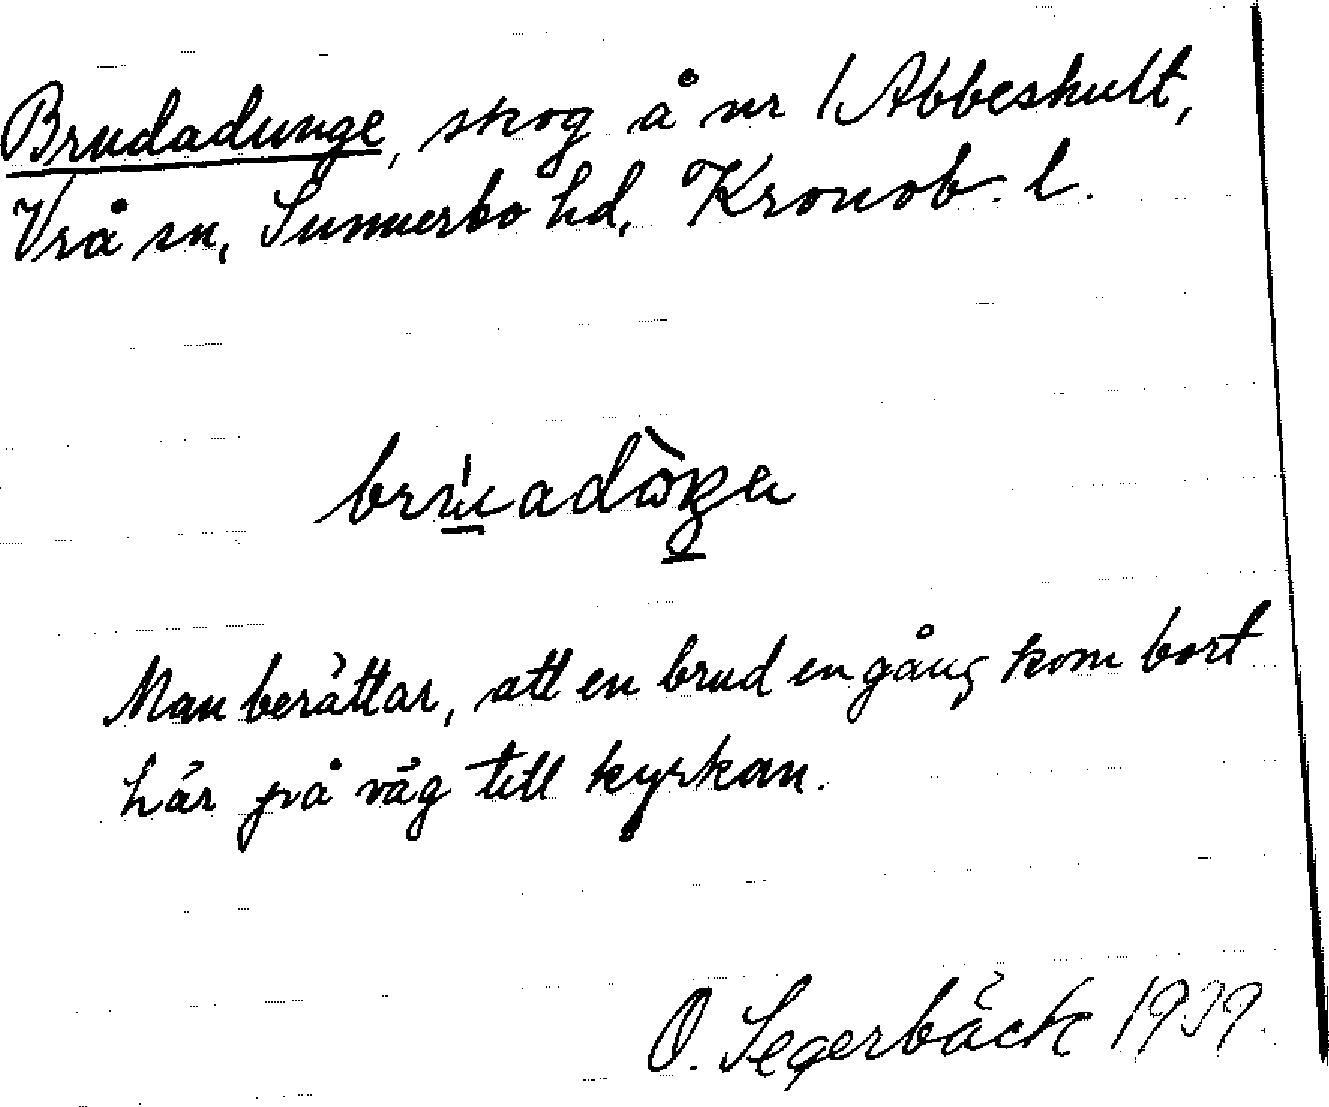 Brudadunge, skog å nr 1 Abbeshult,
Vrå sn, Sunnerbo hd, Kronob. l.
Man berättar, att en brud en gång kom bort
här på väg till kyrkan.
O. Segerbäck 1939.